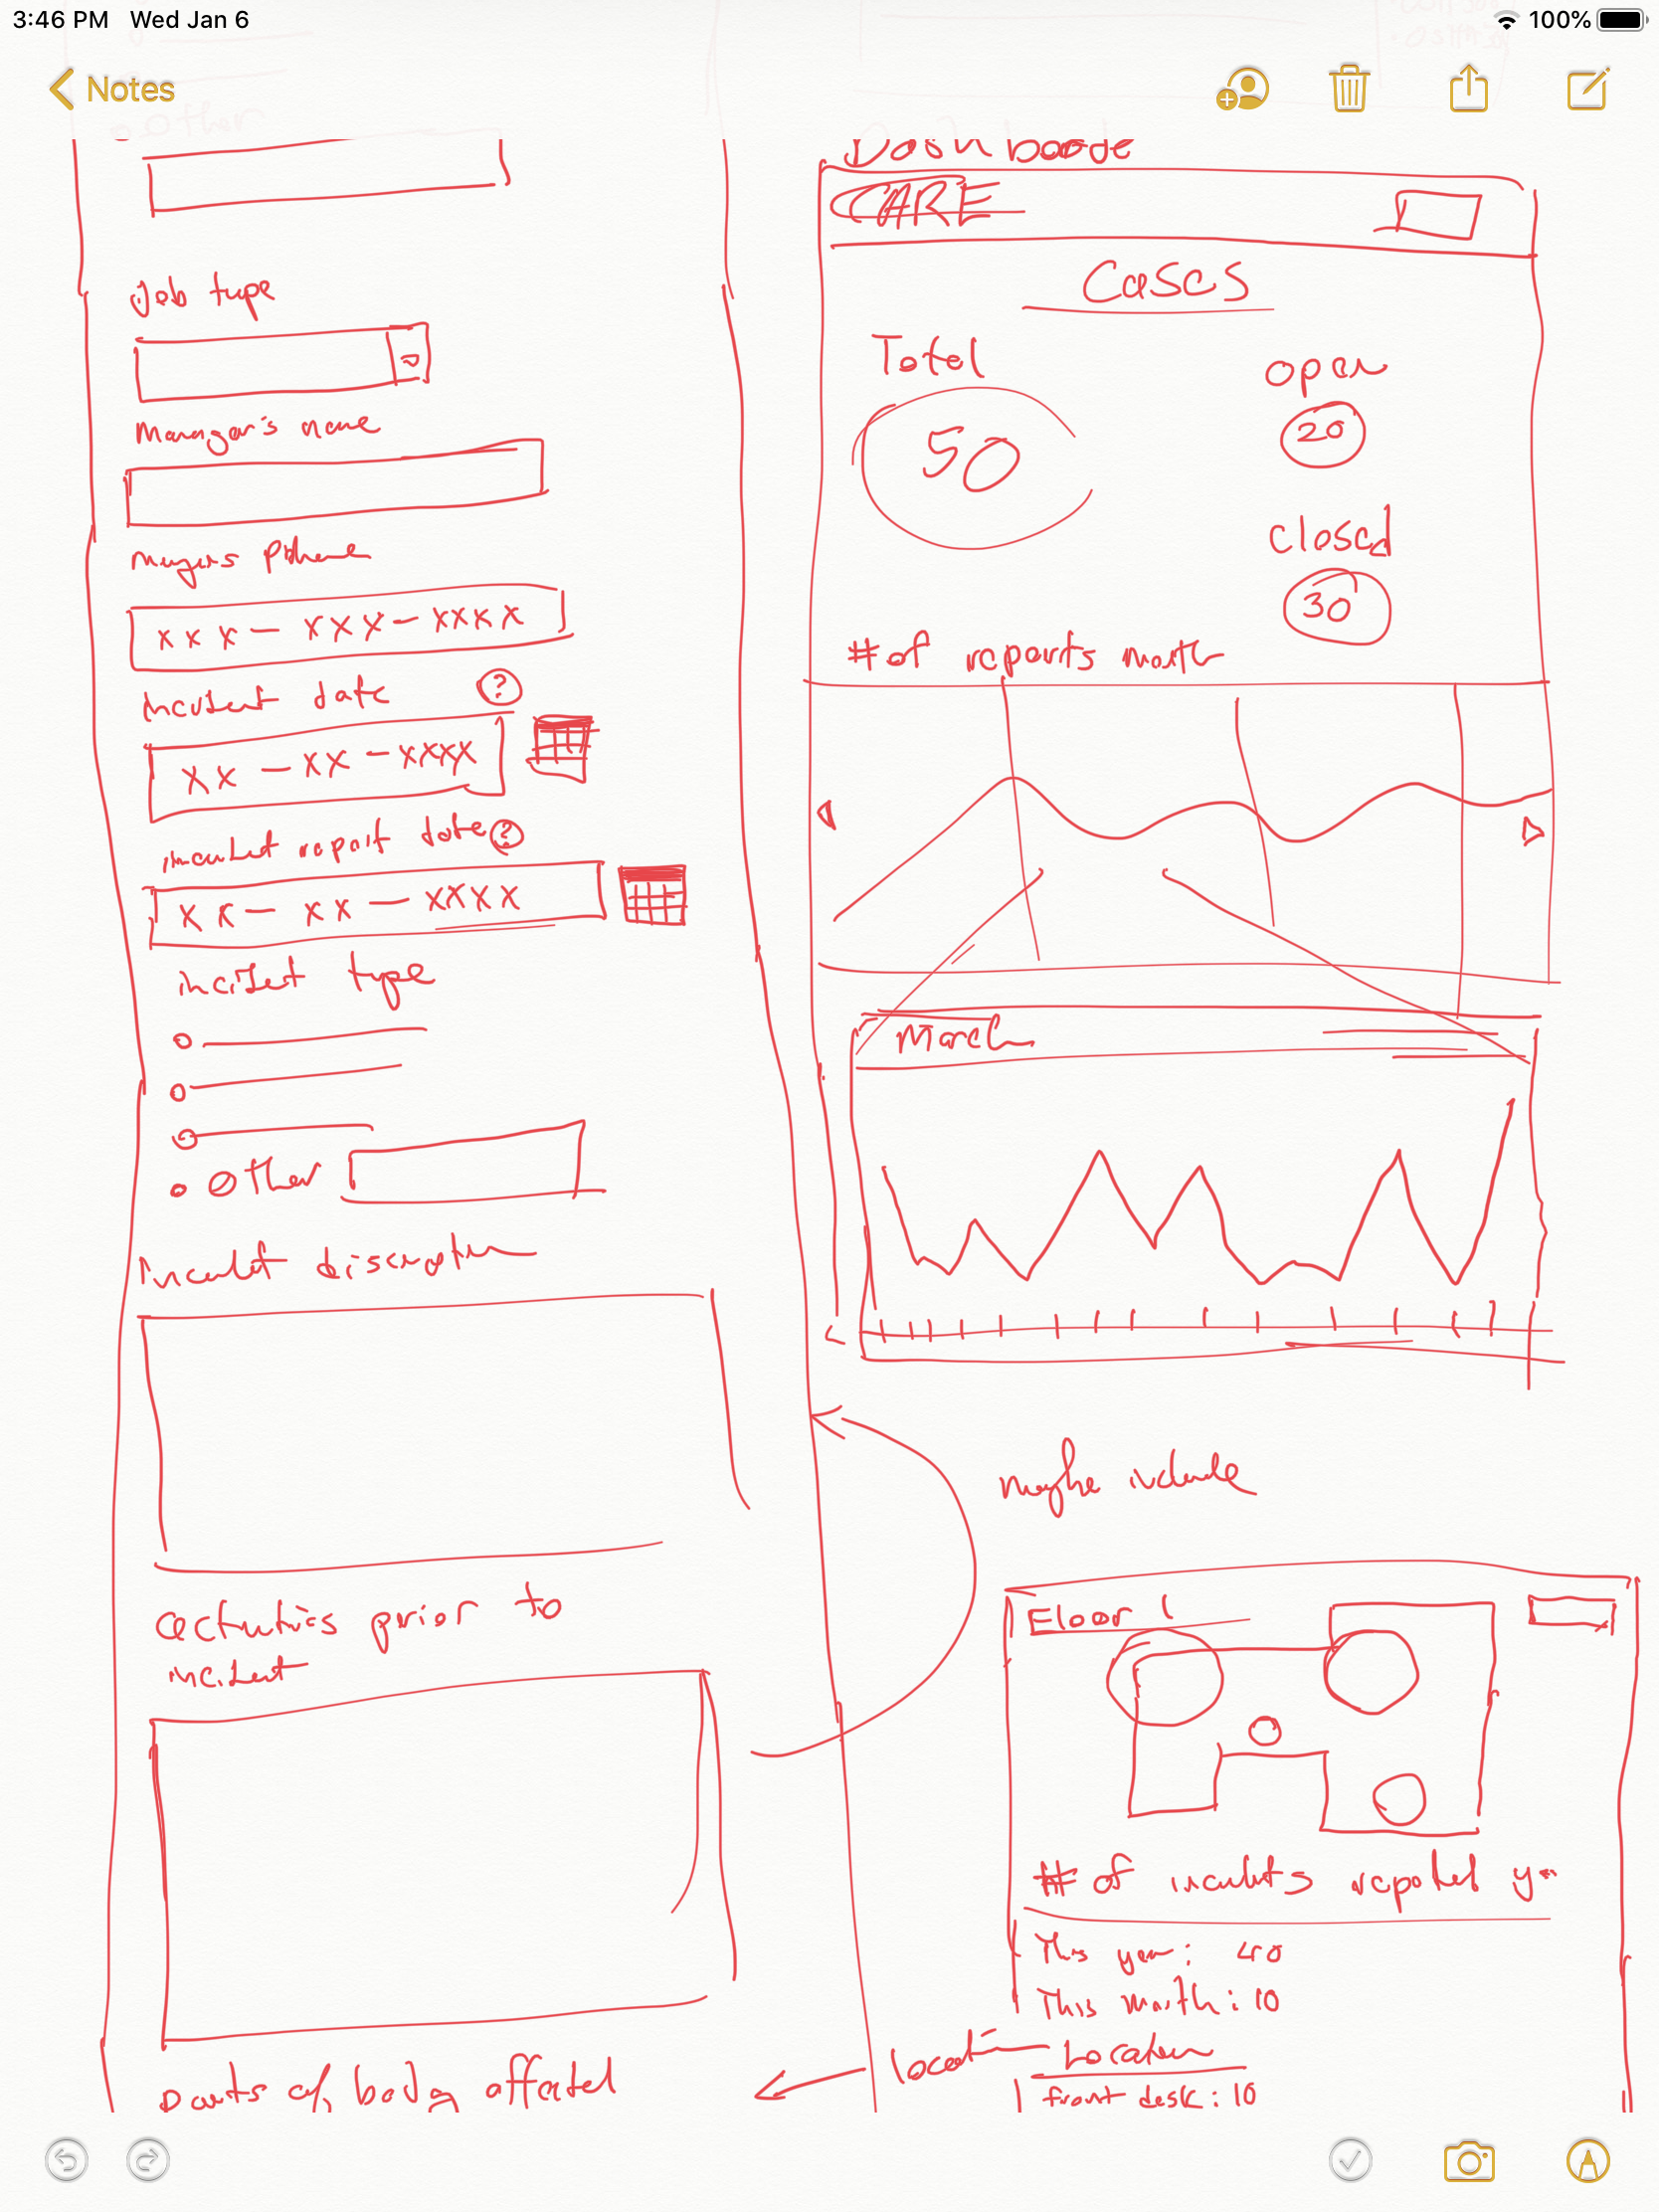 3:46 PM Wed Jan 6
100%
Notes
Other
Job type
Manager's name
xxx - xxx - xxxx
incident date ?
xx - xx - xxxx
incident report date ?
xx - xx - xxxx
incident type
Other
activities prior to
incident
Parts of body affected
Dashboard
CARE
Cases
Total
50
open
20
closed
30
# of reports month
March
maybe include
Floor 1
# of incidents reported
This year: 40
This month: 10
location
Location
front desk: 10